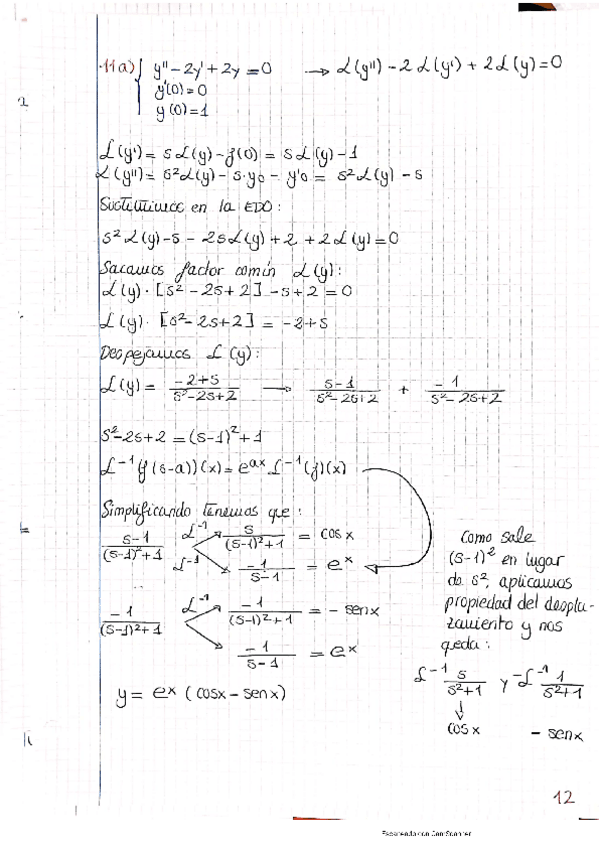 11a) y'' - 2y' + 2y = 0 → L(y'') - 2L(y') + 2L(y) = 0
y'(0) = 0
y(0) = 1
L(y') = sL(y) - y(0) = sL(y) - 1
L(y'') = s²L(y) - s·y0 - y'0 = s²L(y) - s
Sustituimos en la EDO:
s²L(y) - s - 2sL(y) + 2 + 2L(y) = 0
Sacamos factor común L(y):
L(y) · [s² - 2s + 2] - s + 2 = 0
L(y) · [s² - 2s + 2] = -2 + s
Despejamos L(y):
L(y) = (-2+s)/(s²-2s+2) → (s-1)/(s²-2s+2) + (-1)/(s²-2s+2)
s² - 2s + 2 = (s-1)² + 1
L⁻¹(f(s-a))(x) = e^ax L⁻¹(f)(x)
Simplificando tenemos que:
(s-1)/((s-1)²+1) L⁻¹ s/((s-1)²+1) = cos x
L⁻¹ -1/(s-1) = e^x
-1/((s-1)²+1) L⁻¹ -1/((s-1)²+1) = - sen x
-1/(s-1) = e^x
y = e^x (cosx - senx)
Como sale
(s-1)² en lugar
de s², aplicamos
propiedad del despla-
zamiento y nos
queda:
L⁻¹ s/(s²+1) y -L⁻¹ 1/(s²+1)
↓
cos x - sen x
12
Escaneado con CamScanner